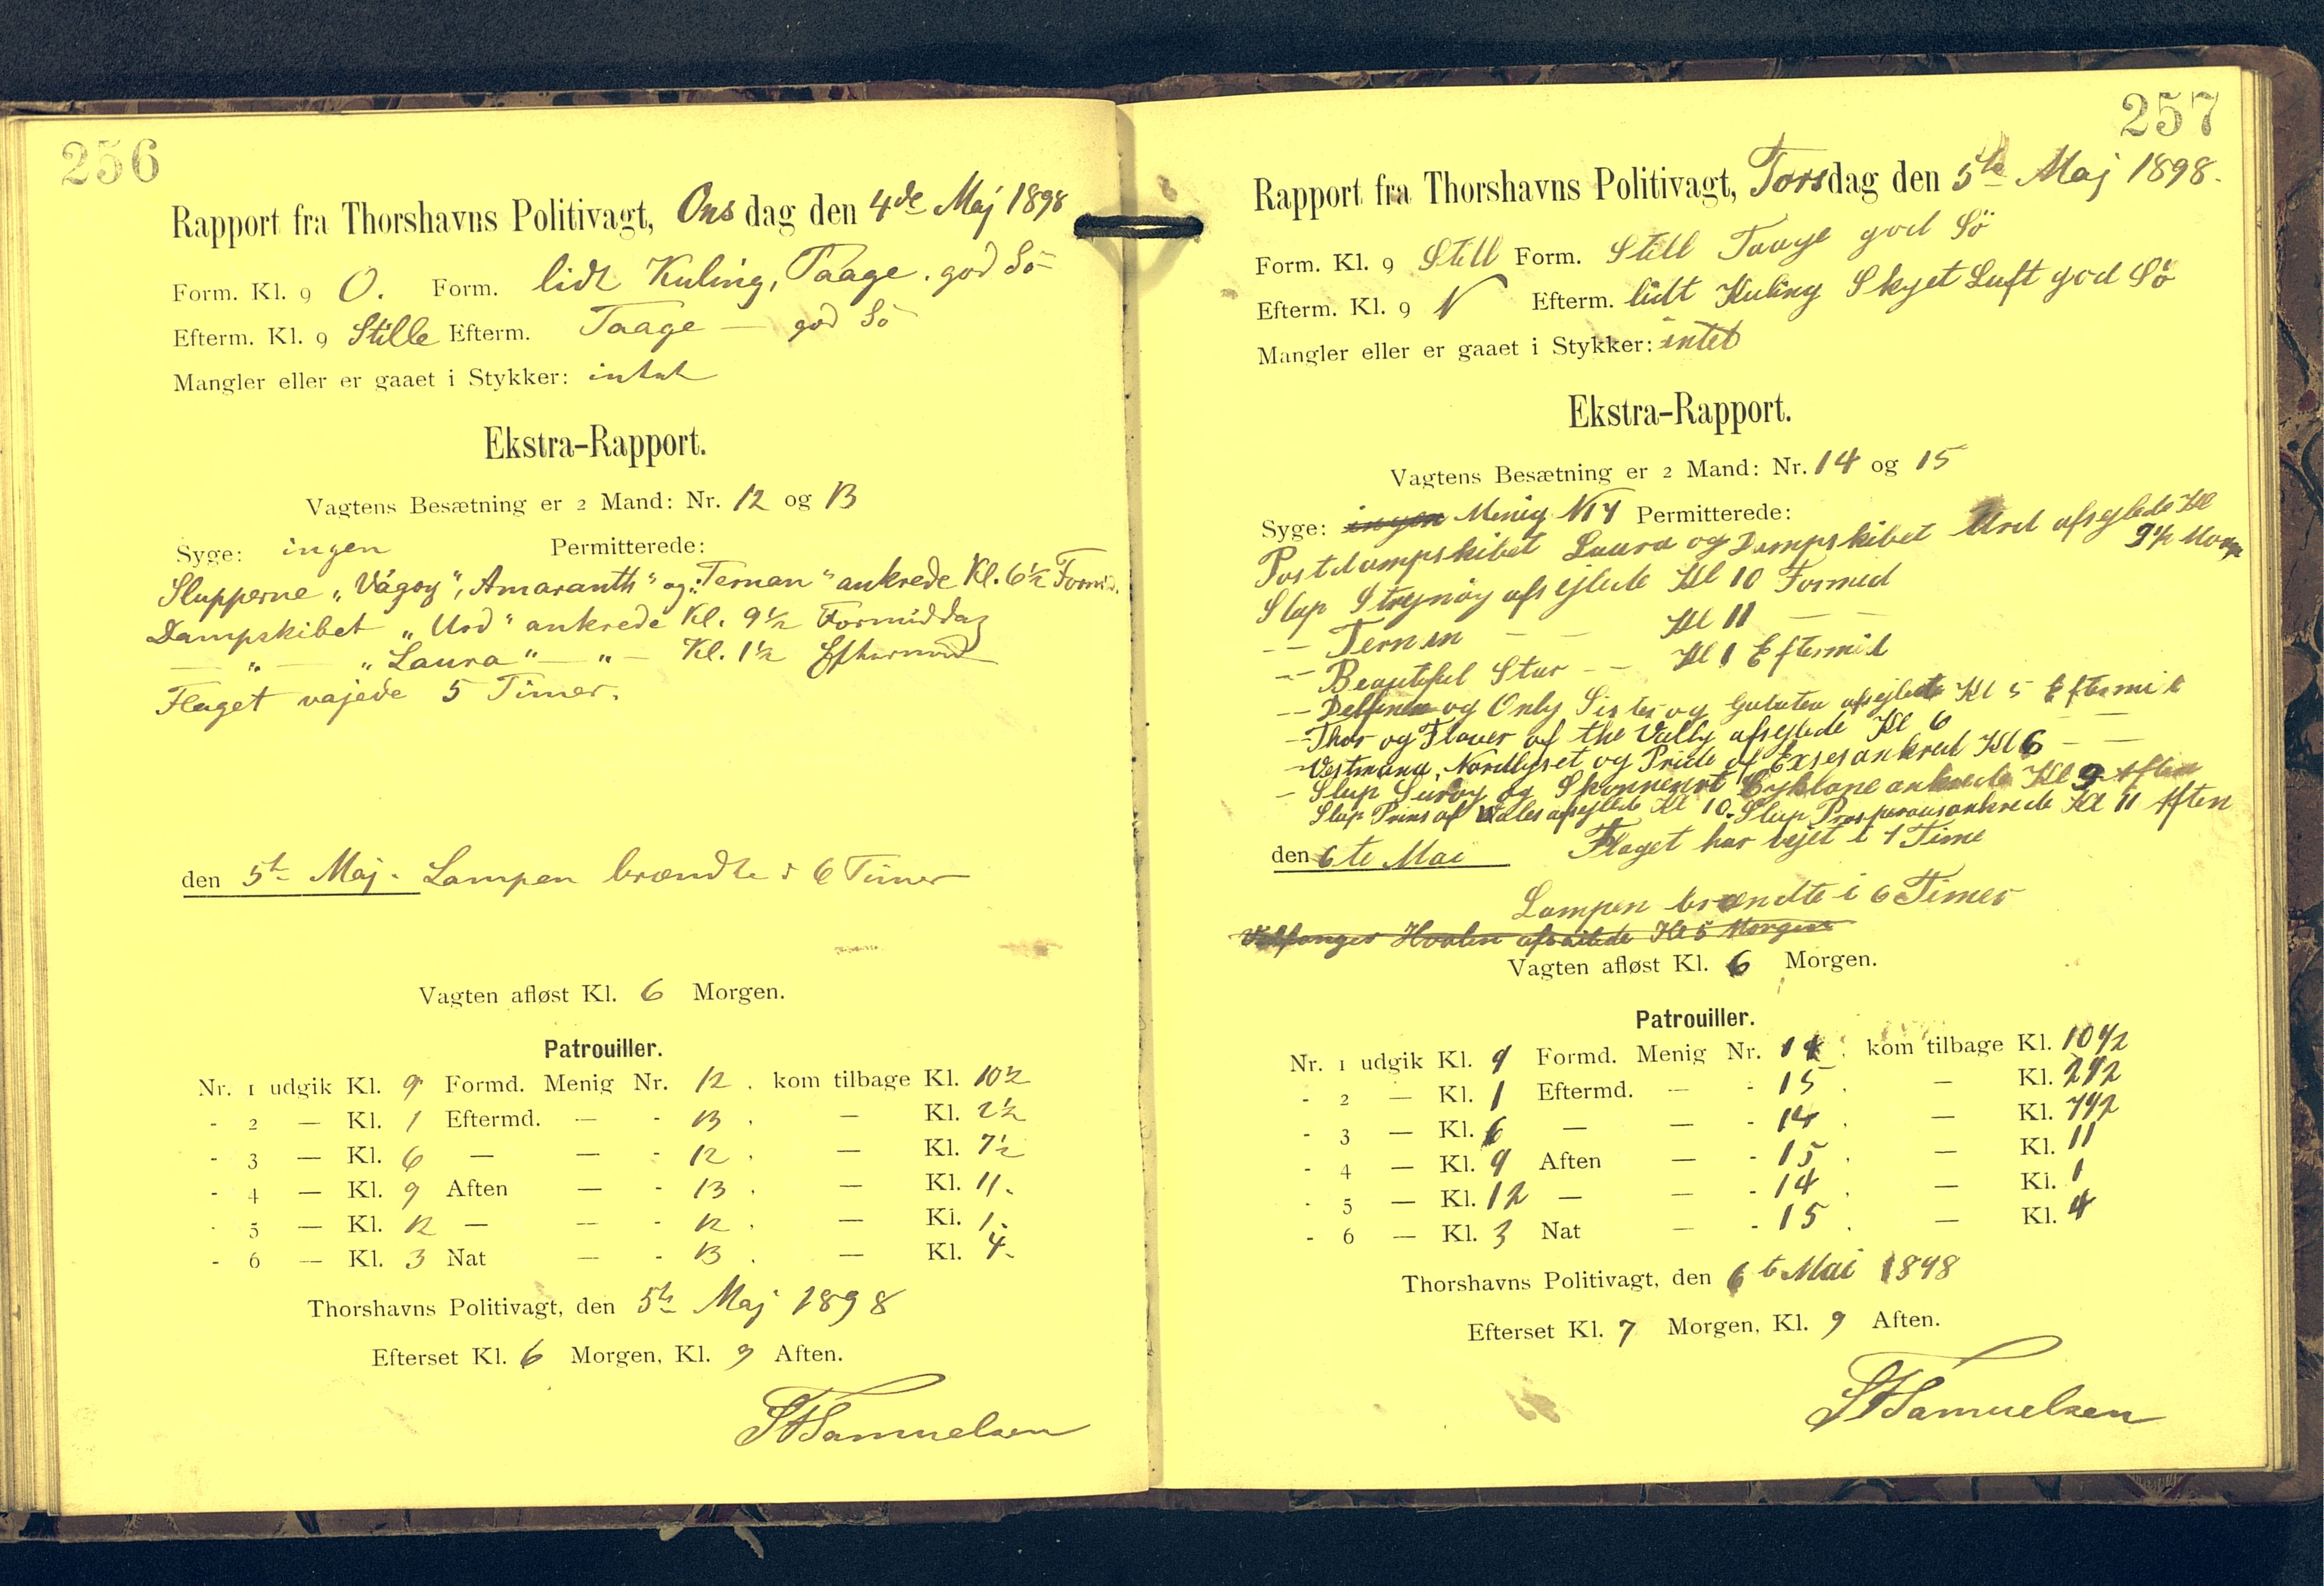 256
Rapport fra Thorshavns Politivagt, Onsdag den 4de Maj 1898
Form. Kl. 9 O. Form. lidt Kuling, Taage. god Sö
Efterm. Kl. 9 Stille Efterm. Taage — god Sö
Mangler eller er gaaet i Stykker: intet
Ekstra-Rapport.
Vagtens Besætning er 2 Mand: Nr. 12 og 13
Syge: ingen Permitterede:
Slupperne „Vágoy", „Amaranth" og „Ternan" ankrede Kl. 6½ Formd.
Dampskibet „Urd" ankrede Kl. 9½ Formiddag
— „ — „Laura" — „ — Kl. 1½ Eftermd
Flaget vajede 5 Timer.
den 5te Maj. Lampen brændte i 6 Timer
Vagten afløst Kl. 6 Morgen.
Patrouiller.
Nr. 1 udgik Kl. 9 Formd. Menig Nr. 12. kom tilbage Kl. 10½
- 2 — Kl. 1 Eftermd. — - 13. — Kl. 2½
- 3 — Kl. 6 — — - 12. — Kl. 7½
- 4 — Kl. 9 Aften — - 13. — Kl. 11.
- 5 — Kl. 12 — — - 12. — Kl. 1.
- 6 — Kl. 3 Nat — - 13. — Kl. 4.
Thorshavns Politivagt, den 5te Maj 1898
Efterset Kl. 6 Morgen, Kl. 9 Aften.
Samuelsen
257
Rapport fra Thorshavns Politivagt, Torsdag den 5te Maj 1898.
Form. Kl. 9 Still Form. Still Taage god Sö
Efterm. Kl. 9 N Efterm. lidt Kuling Skyet Luft god Sö
Mangler eller er gaaet i Stykker: intet
Ekstra-Rapport.
Vagtens Besætning er 2 Mand: Nr. 14 og 15
Syge: ingen Menig Permitterede:
Postdampskibet Laura og Dampskibet Urd afsejlede Kl
9½ Morgn
Slup Strejnöy afsejlede Kl 10 Formed
-- Ternen — — Kl 11 — —
-- Beautiful Star -- Kl 1 Eftermid
-- Delfinen og Only Sister og Galatea afsejlede Kl 5 Eftermid
- Thor og Flauer of the Vally afsejlede Kl 6 — —
- Vestmana, Nordlyset og Pride of Exses ankred Kl 6 — —
- Slup Suroy og Skonnenrt Cyklone ankrede Kl 9 Aften
Slup Prins of Wales afsejlede Kl 10. Slup Prosperous ankrede Kl 11 Aften
den 6te Mai Flaget har vejet i 1 Time
Lampen brændte i 6 Timer
afseilede Kl 5 Morgen
Vagten afløst Kl. 6 Morgen.
Patrouiller.
Nr. 1 udgik Kl. 9 Formd. Menig Nr. 14. kom tilbage Kl. 10½
- 2 — Kl. 1 Eftermd. — - 15. — Kl. 2½
- 3 — Kl. 6 — — - 14. — Kl. 7½
- 4 — Kl. 9 Aften — - 15. — Kl. 11
- 5 — Kl. 12 — — - 14. — Kl. 1
- 6 — Kl. 3 Nat — - 15. — Kl. 4
Thorshavns Politivagt, den 6t Mai 1898
Efterset Kl. 7 Morgen, Kl. 9 Aften.
Samuelsen